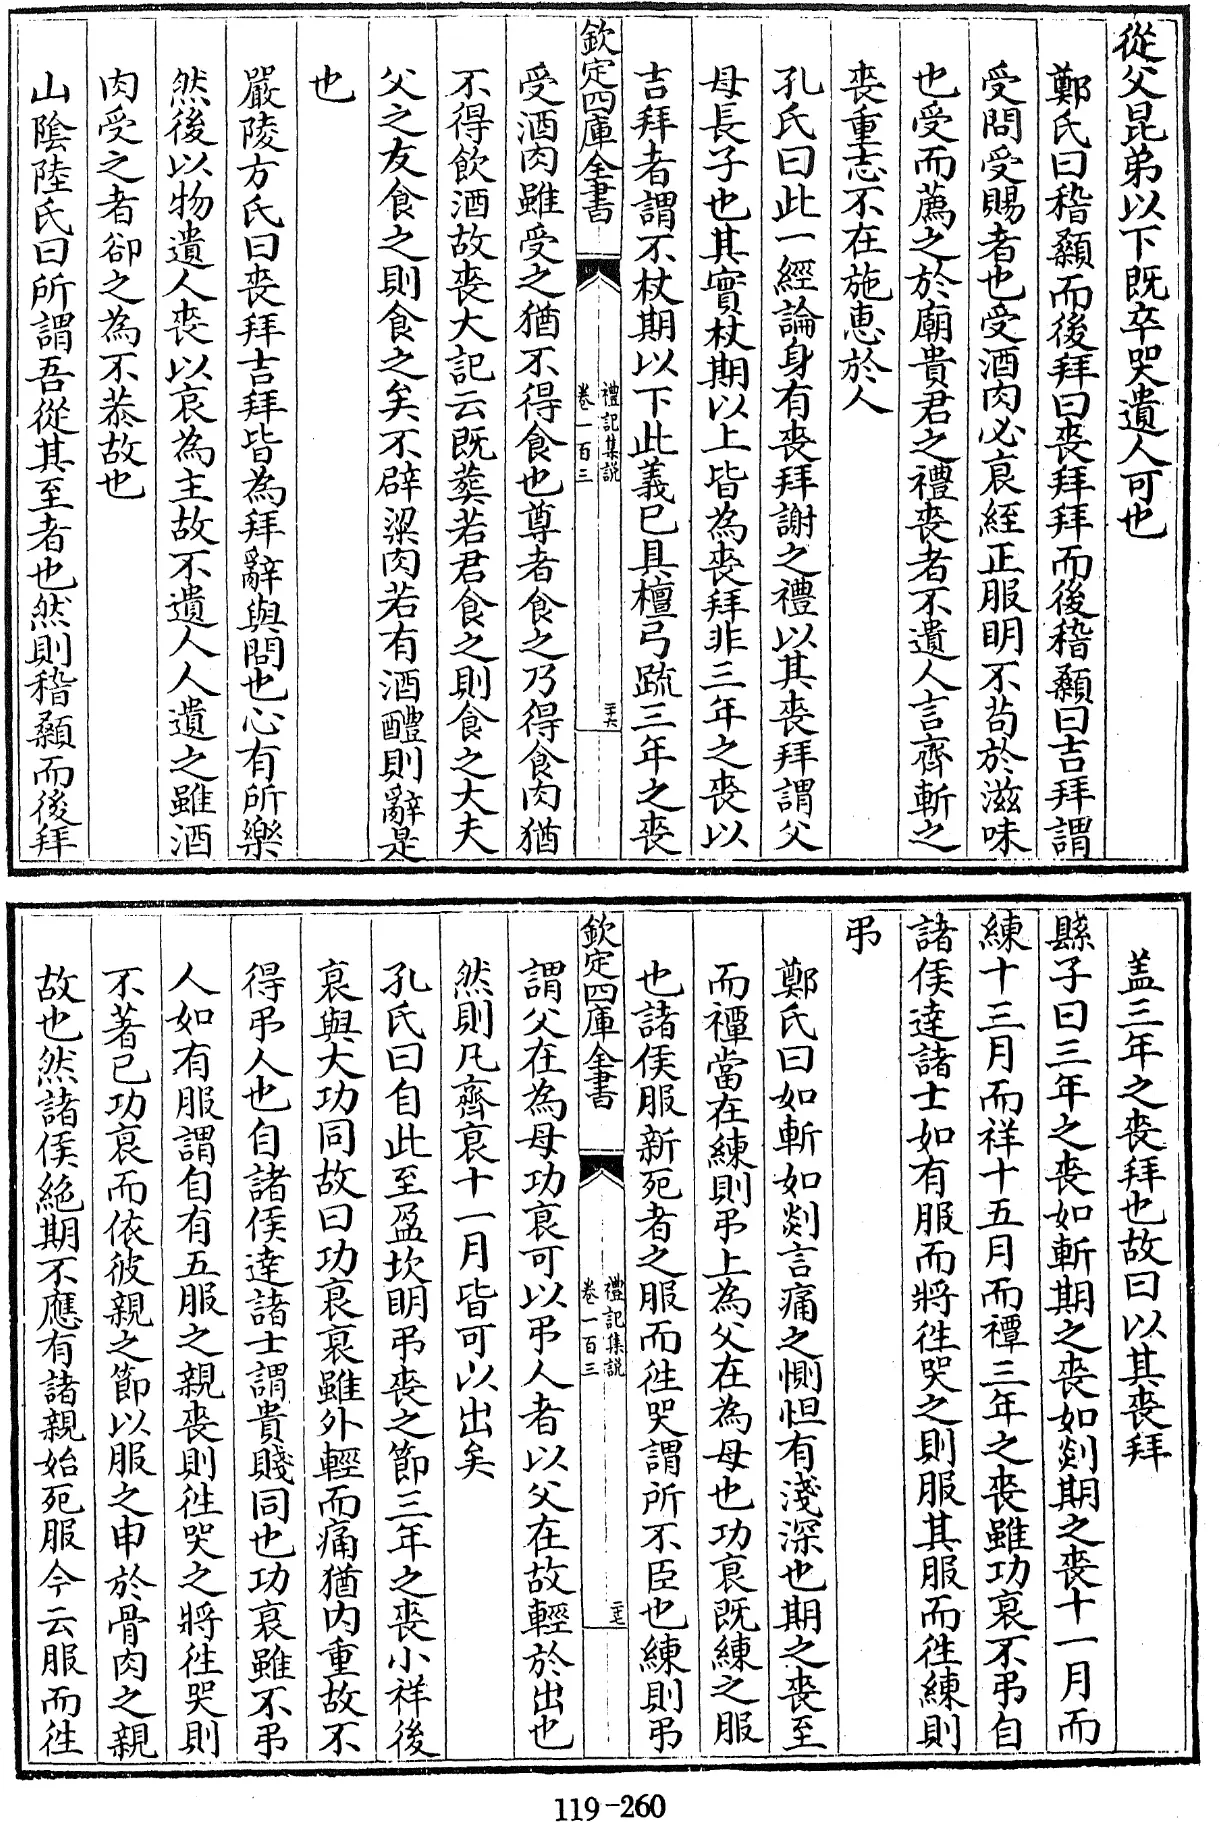 從父昆弟以下既卒哭遺人可也
鄭氏曰稽顙而後拜曰喪拜拜而後稽顙曰吉拜謂
受問受賜者也受酒肉必衰絰正服明不苟於滋味
也受而薦之於廟貴君之禮喪者不遺人言齊斬之
喪重志不在施惠於人
孔氏曰此一經論身有喪拜謝之禮以其喪拜謂父
母長子也其實杖期以上皆為喪拜非三年之喪以
吉拜者謂不杖期以下此義已具檀弓疏三年之喪
欽定四庫全書
禮記集說
卷一百三
三六
受酒肉雖受之猶不得食也尊者食之乃得食肉猶
不得飲酒故喪大記云既葬若君食之則食之大夫
父之友食之則食之矣不辟粱肉若有酒醴則辭是
也
嚴陵方氏曰喪拜吉拜皆為拜辭與問也心有所樂
然後以物遺人喪以哀為主故不遺人人遺之雖酒
肉受之者卻之為不恭故也
山陰陸氏曰所謂吾從其至者也然則稽顙而後拜
盖三年之喪拜也故曰以其喪拜
縣子曰三年之喪如斬期之喪如剡期之喪十一月而
練十三月而祥十五月而禫三年之喪雖功衰不弔自
諸侯達諸士如有服而將徃哭之則服其服而徃練則
弔
鄭氏曰如斬如剡言痛之惻怛有淺深也期之喪至
而禫當在練則弔上為父在為母也功衰既練之服
也諸侯服新死者之服而徃哭謂所不臣也練則弔
欽定四庫全書
禮記集說
卷一百三
三七
謂父在為母功衰可以弔人者以父在故輕於出也
然則凡齊衰十一月皆可以出矣
孔氏曰自此至盈坎明弔喪之節三年之喪小祥後
衰與大功同故曰功衰衰雖外輕而痛猶内重故不
得弔人也自諸侯達諸士謂貴賤同也功衰雖不弔
人如有服謂自有五服之親喪則徃哭之將徃哭則
不著已功衰而依彼親之節以服之申於骨肉之親
故也然諸侯絶期不應有諸親始死服今云服而徃
119-260